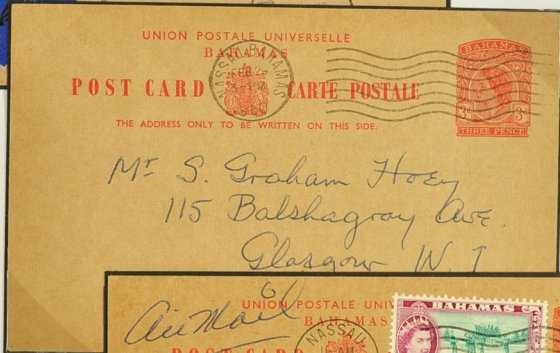 UNION POSTALE UNIVERSELLE
BAHAMAS
POST CARD CARTE POSTALE
THE ADDRESS ONLY TO BE WRITTEN ON THIS SIDE.
NASSAU BAHAMAS
FEB 2
BAHAMAS
3D 3D
THREE PENCE
Mr S. Graham Hoey
115 Balshagray Ave.
Glasgow W. I
Air Mail
UNION POSTALE UNIV
BAHAMAS
NASSAU
AM
BAHAMAS
POST CARD